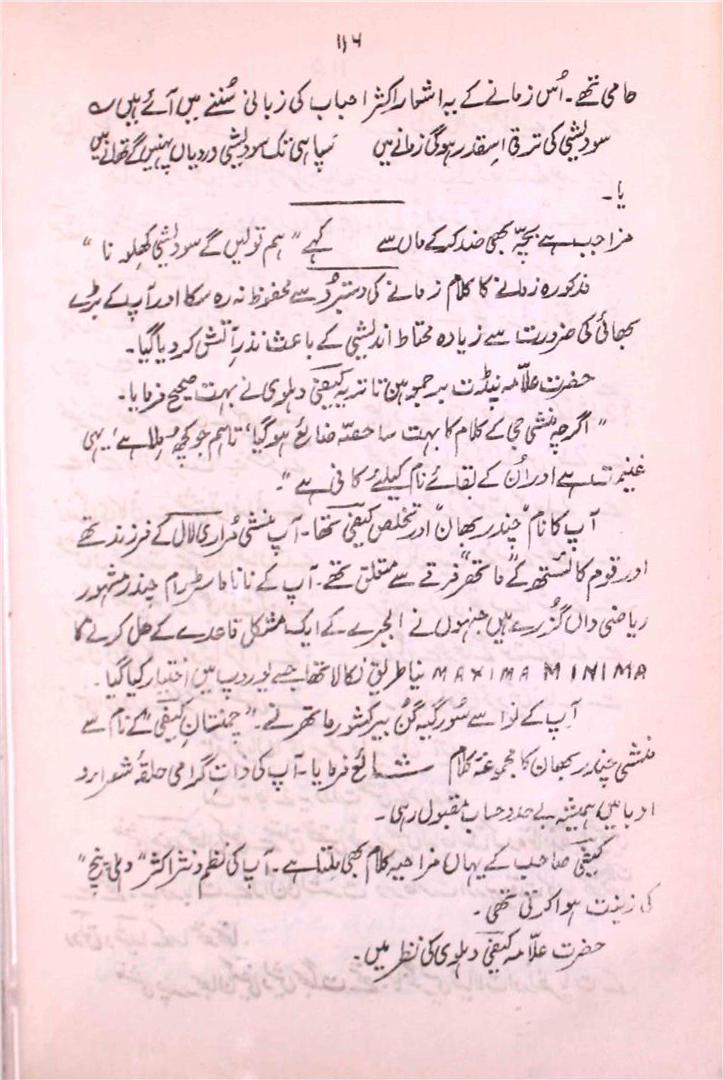 ۱۱۶
حامی تھے۔ اُس زمانے کے یہ اشعار اکثر احباب کی زبانی سُننے میں آئے ہیں ؎
سودیشی کی ترقی اسقدر ہوگی زمانے میں سپاہی تک سودیشی وردیاں پہنیں گے تھانے میں
یا۔
مزا جب ہے بچّہ بھی ضد کرکے ماں سے کہے "ہم تو لیں گے سودیشی کھلونا"
مذکورہ زمانے کا کلام زمانے کی دستبرُد سے محفوظ نہ رہ سکا اور آپ کے بڑے
بھائی کی ضرورت سے زیادہ محتاط اندیشی کے باعث نذرِ آتش کر دیا گیا۔
حضرت علّامہ پنڈت برجموہن دتاتریہ کیفی دہلوی نے بہت صحیح فرمایا۔
"اگرچہ منشی جی کے کلام کا بہت سا حصّہ ضائع ہوگیا، تاہم جو کچھ مِلا ہے، یہی
غنیمت ہے اور اُن کے بقائے نام کیلئے کافی ہے"۔
آپ کا نام "چندر بھان" اور تخلص کیفی تھا۔ آپ منشی مُراری لال کے فرزند تھے
اور قوم کائستھ کے "ماتھر فرقے" سے متعلق تھے۔ آپ کے نانا ماسٹر رام چندر مشہور
ریاضی داں گُزرے ہیں جنہوں نے الجبرے کے ایک مشکل قاعدے کے حل کرنے کا
MAXIMA MINIMA نیا طریق نکالا تھا جسے یورپ میں اختیار کیا گیا۔
آپ کے نواسے سورگیہ کنور بیر کشور ماتھر نے۔ "چمنستانِ کیفی" کے نام سے
منشی چندر بھان کا مجموعۂ کلام شائع فرمایا۔ آپ کی ذاتِ گرامی حلقۂ شعرا و
ادبا میں ہمیشہ بے حد و حساب مقبول رہی۔
کیفی صاحب کے یہاں مزاحیہ کلام بھی ملتا ہے۔ آپ کی نظم و نثر اکثر "دہلی پنچ"
کی زینت ہوا کرتی تھی۔
حضرت علّامہ کیفی دہلوی کی نظر میں۔